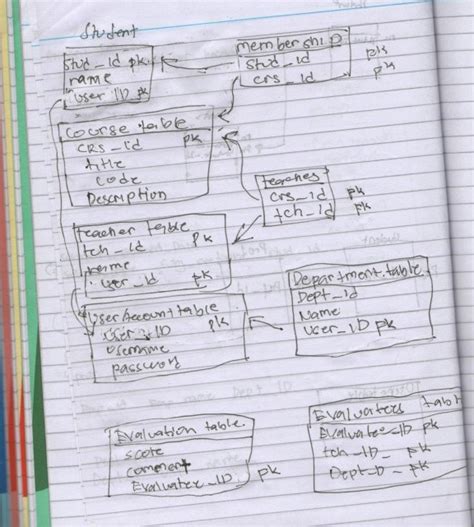 Student
stud_id pk
name
user ID pk
membership
stud_id pk
crs_id pk
course table
crs_id pk
title
code
Description
teaches
crs_id pk
tch_id pk
teacher table
tch_id pk
name
user_id pk
User Account table
user_ID pk
username
password
Department table
Dept_id
Name
user_ID pk
Evaluation table
score
comment
Evaluatee_ID pk
Evaluatees table
Evaluatee_ID pk
tch_ID_ pk
Dept_D_ pk